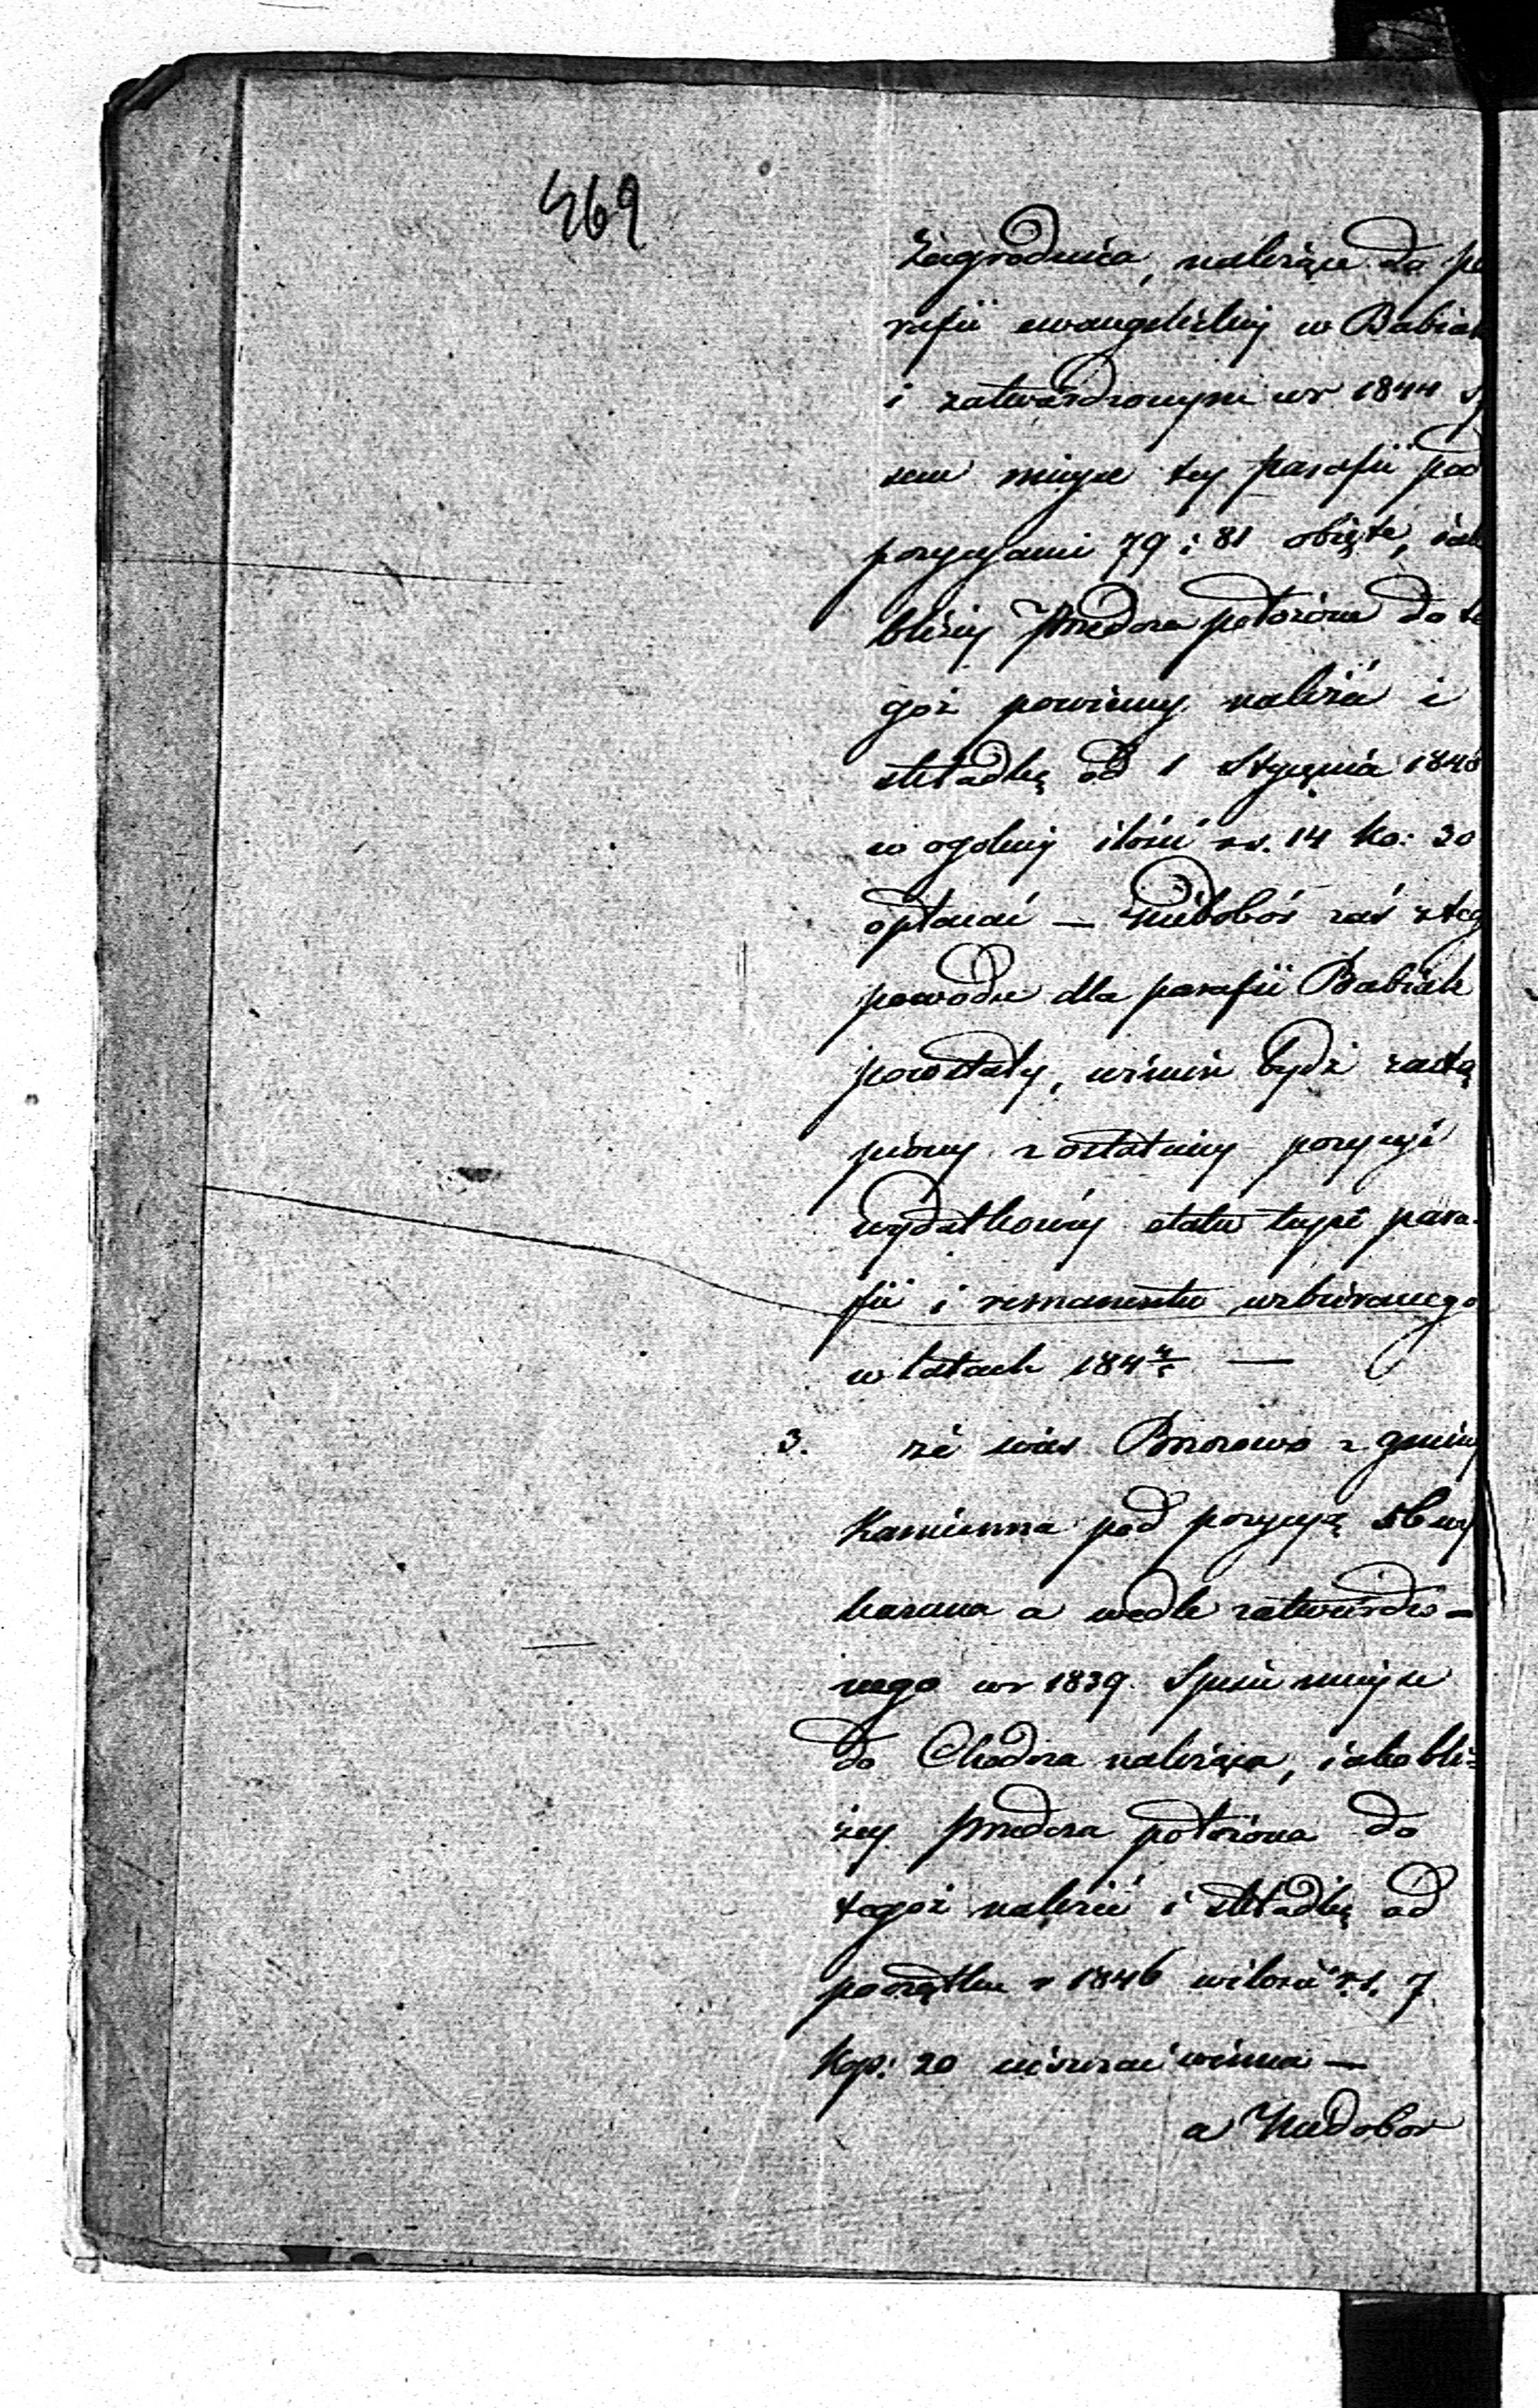 469
Zagrodnica, należące do pa
rafii ewangelickiey w Babiak
i zatwierdzonym w r 1844 s
sem mieysc tey parafii pod
pozycyami 79 i 81 objęte, iak
bliżey Przedcza położone do te
goż powinny należeć i
składkę od 1 Stycznia 1846
w ogolney ilości rs. 14 ko: 30
opłacać — Niedobór zaś z teg
powodu dla parafii Babiak
powstały, winien bydź zastą
piony z ostatniey pozycyi
wydatkowey etatu teyże para-
fii i remanentu uzbieranego
w latach 184 4/5 —
3. że wieś Brzozowo z gminy
Kamienna pod pozycyą 56 wy
kazana a wedle zatwierdzo-
nego w r 1839. Spisu mieysc
do Chodcza należąca, iako bli-
żey Przedcza położona do
tegoż należeć i składkę od
początku r 1846 w ilości rs. 7
Kop: 20 uiszczać winna —
a Niedobor